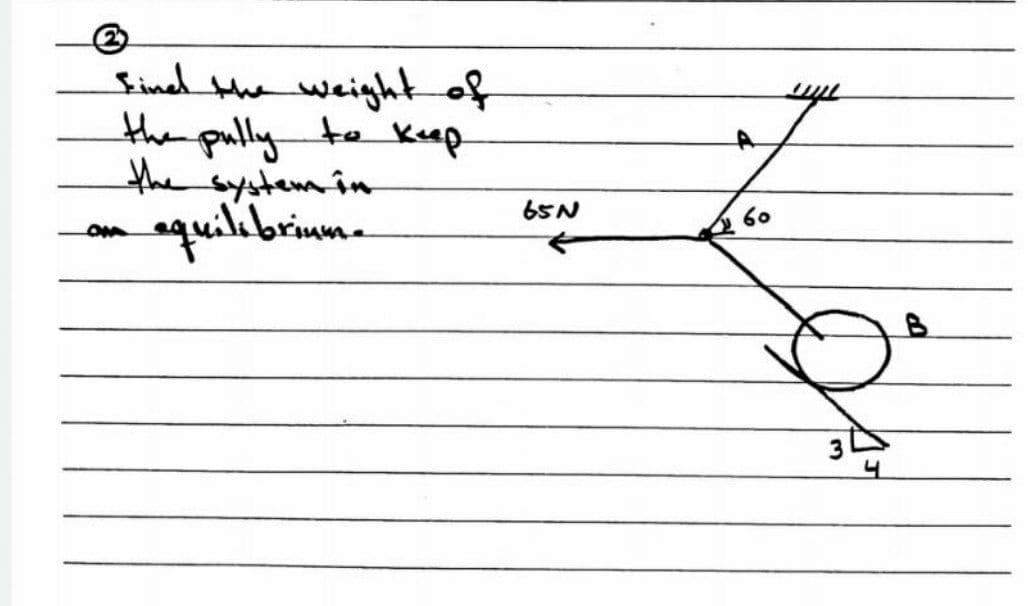 2
Find the weight of
the pully to keep
the system in
an equilibrium.
A
65N
60
B
3
4